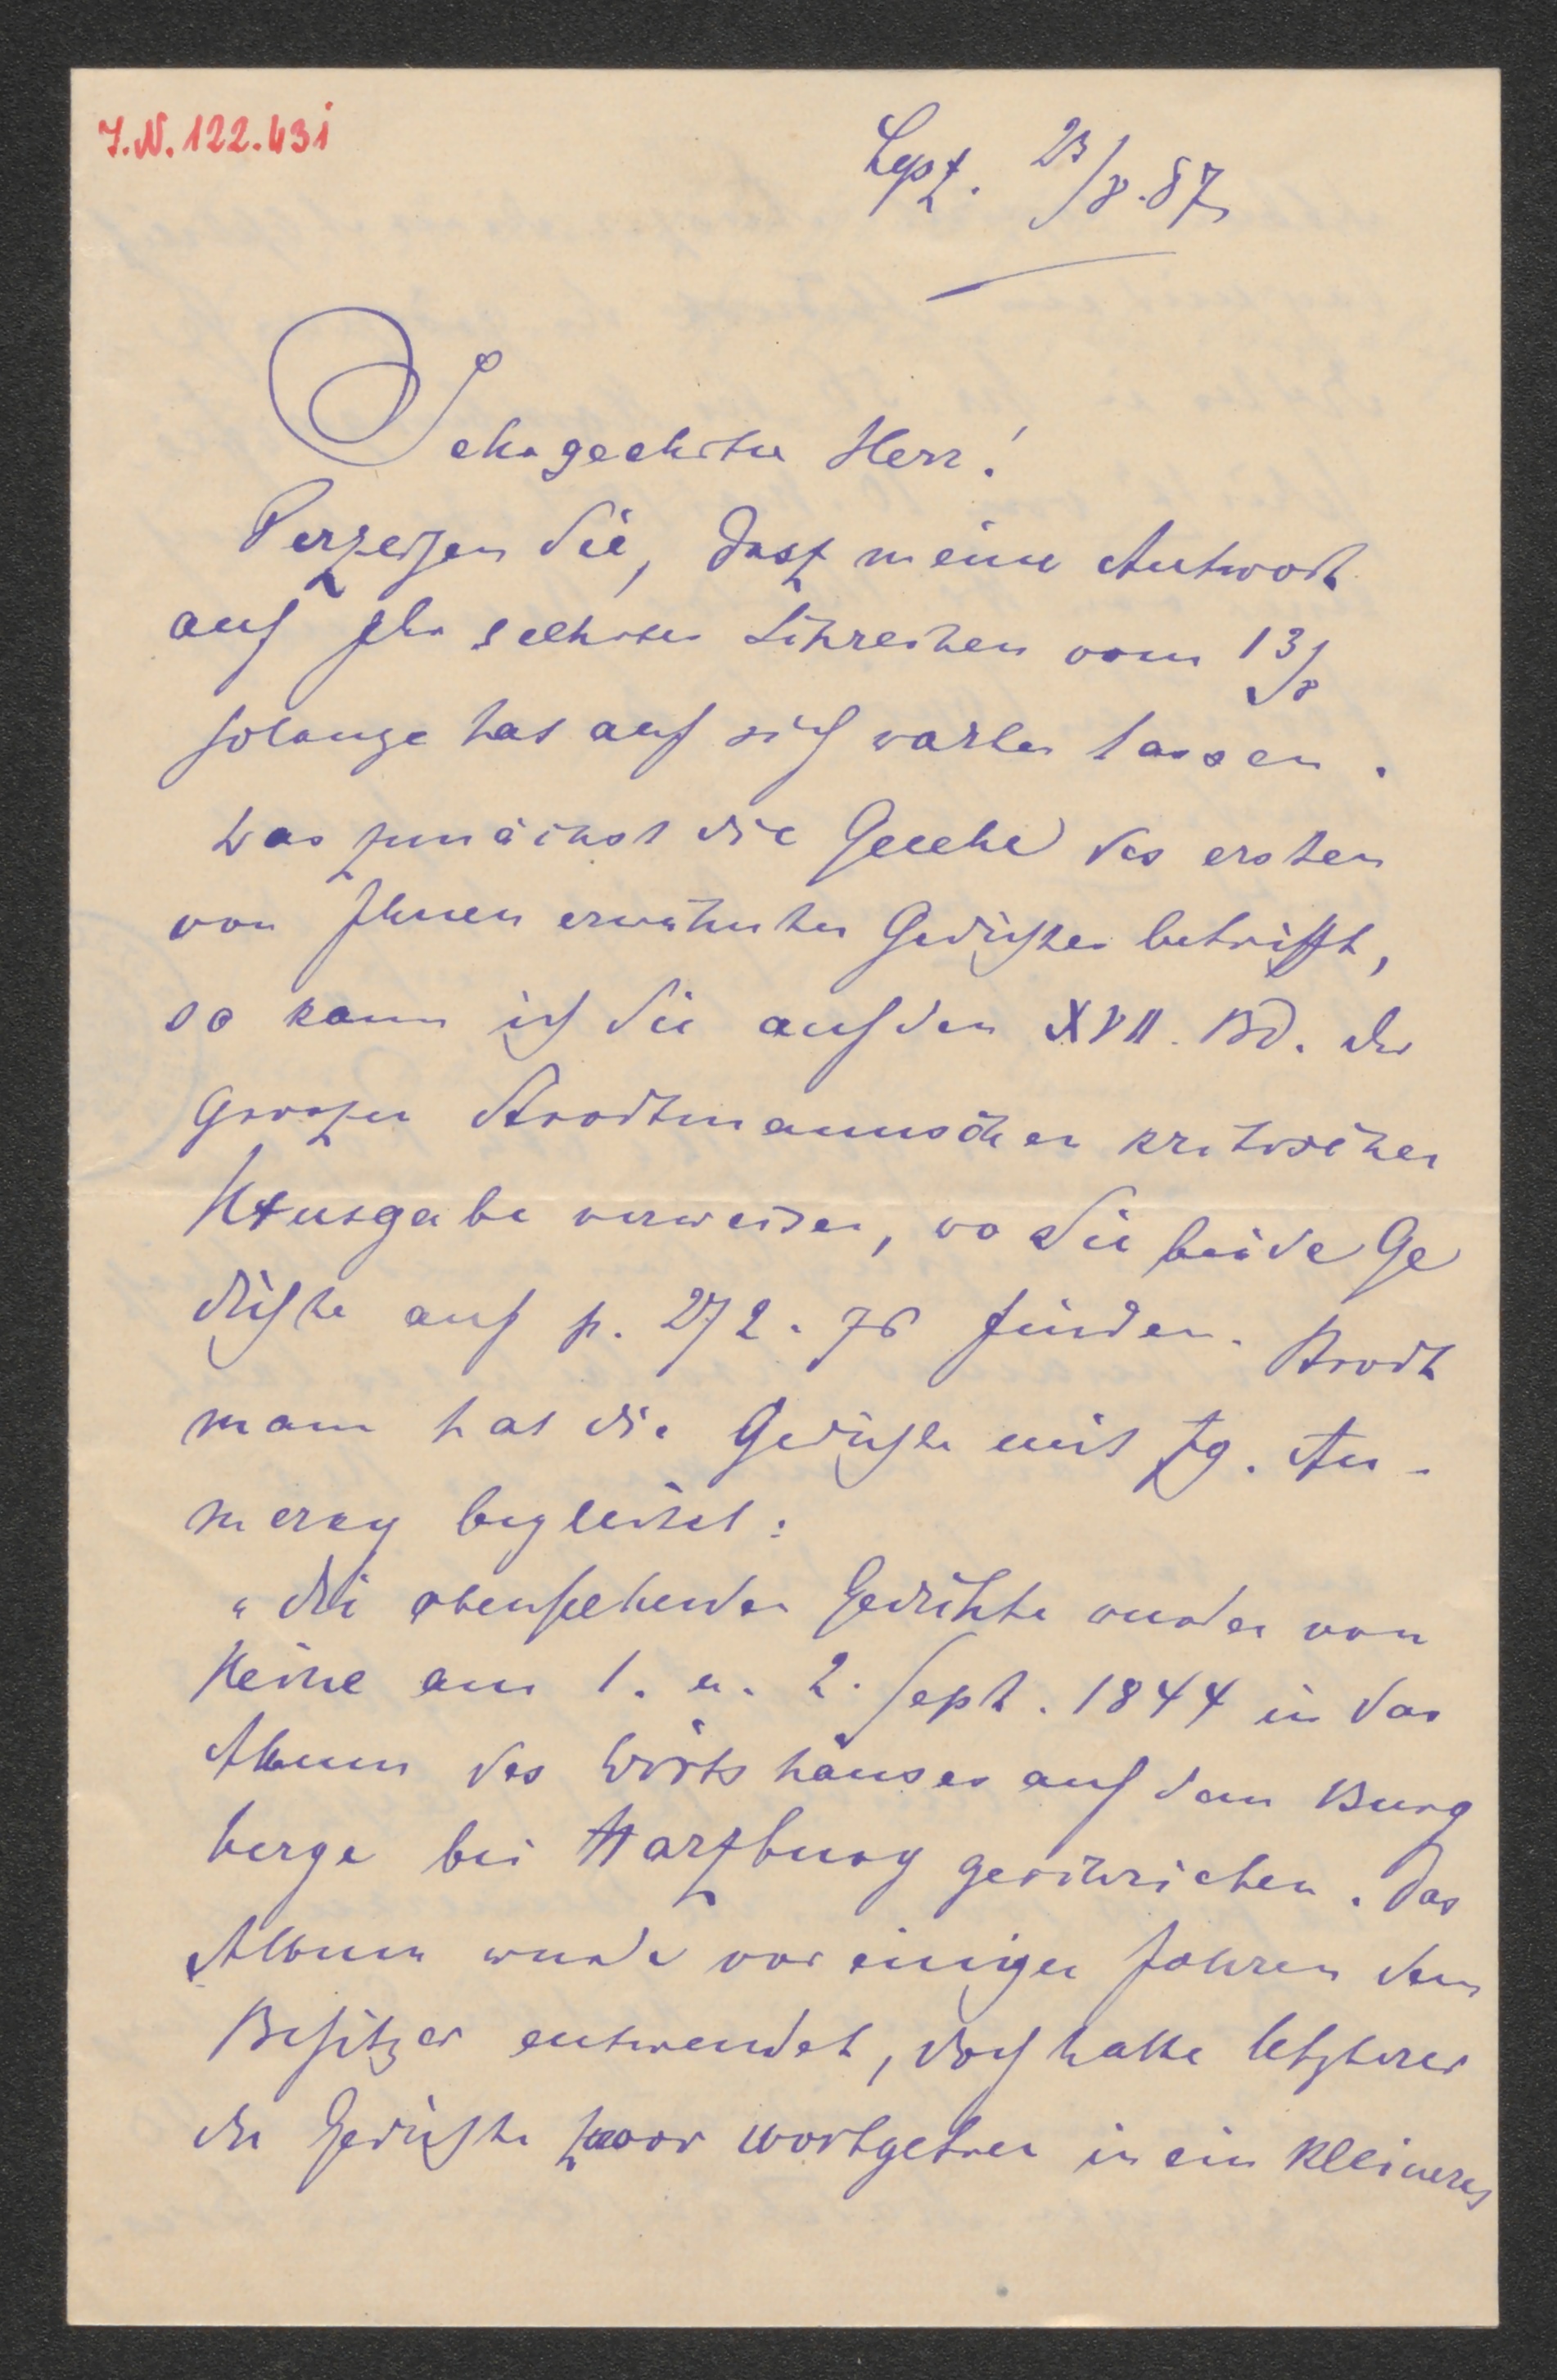 I.N. 122.431
Lpz. 23/8.87
Sehr geehrter Herr!
Verzeihen Sie, dasz meine Antwort
auf Ihr geehrtes Schreiben vom 13/8
solange hat auf sich warten lassen.
Was zunächst die Quelle des ersten
von Ihnen erwähnten Gedichtes betrifft,
so kann ich Sie auf den XVII. Bd. der
groszen Strodtmannschen kritischen
Ausgabe verweisen, wo Sie beide Ge
dichte auf p. 272. 76 finden. Strodt
mann hat die Gedichte mit fg. An-
merkg begleitet:
"Die obenstehenden Gedichte wurden von
Heine am 1. u. 2. Sept. 1844 in das
Album des Wirtshauses auf dem Burg
berge bei Harzburg geschrieben. Das
Album wurde vor einigen Jahren dem
Besitzer entwendet, doch hatte letzterer
die Gedichte zuvor wortgetreu in ein kleineres